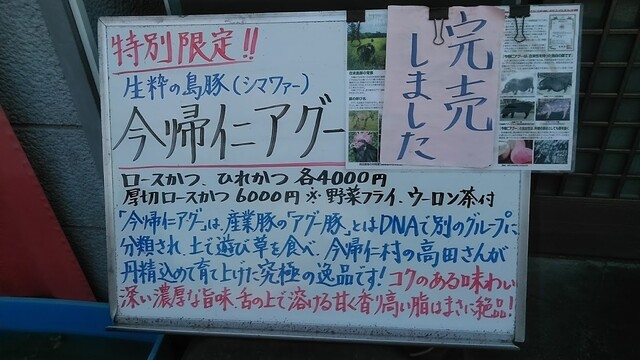 特別限定!!
生粋の島豚(シマワァー)
今帰仁アグー
完売
しました
ロースかつ、ひれかつ 各4000円
厚切ロースかつ 6000円 ※野菜フライ、ウーロン茶付
「今帰仁アグー」は、産業豚の「アグー豚」とはDNAで別のグループに
分類され、土で遊び草を食べ、今帰仁村の高田さんが
丹精込めて育て上げた究極の逸品です!コクのある味わい
深い濃厚な旨味、舌の上で溶ける甘く香り高い脂はまさに絶品!